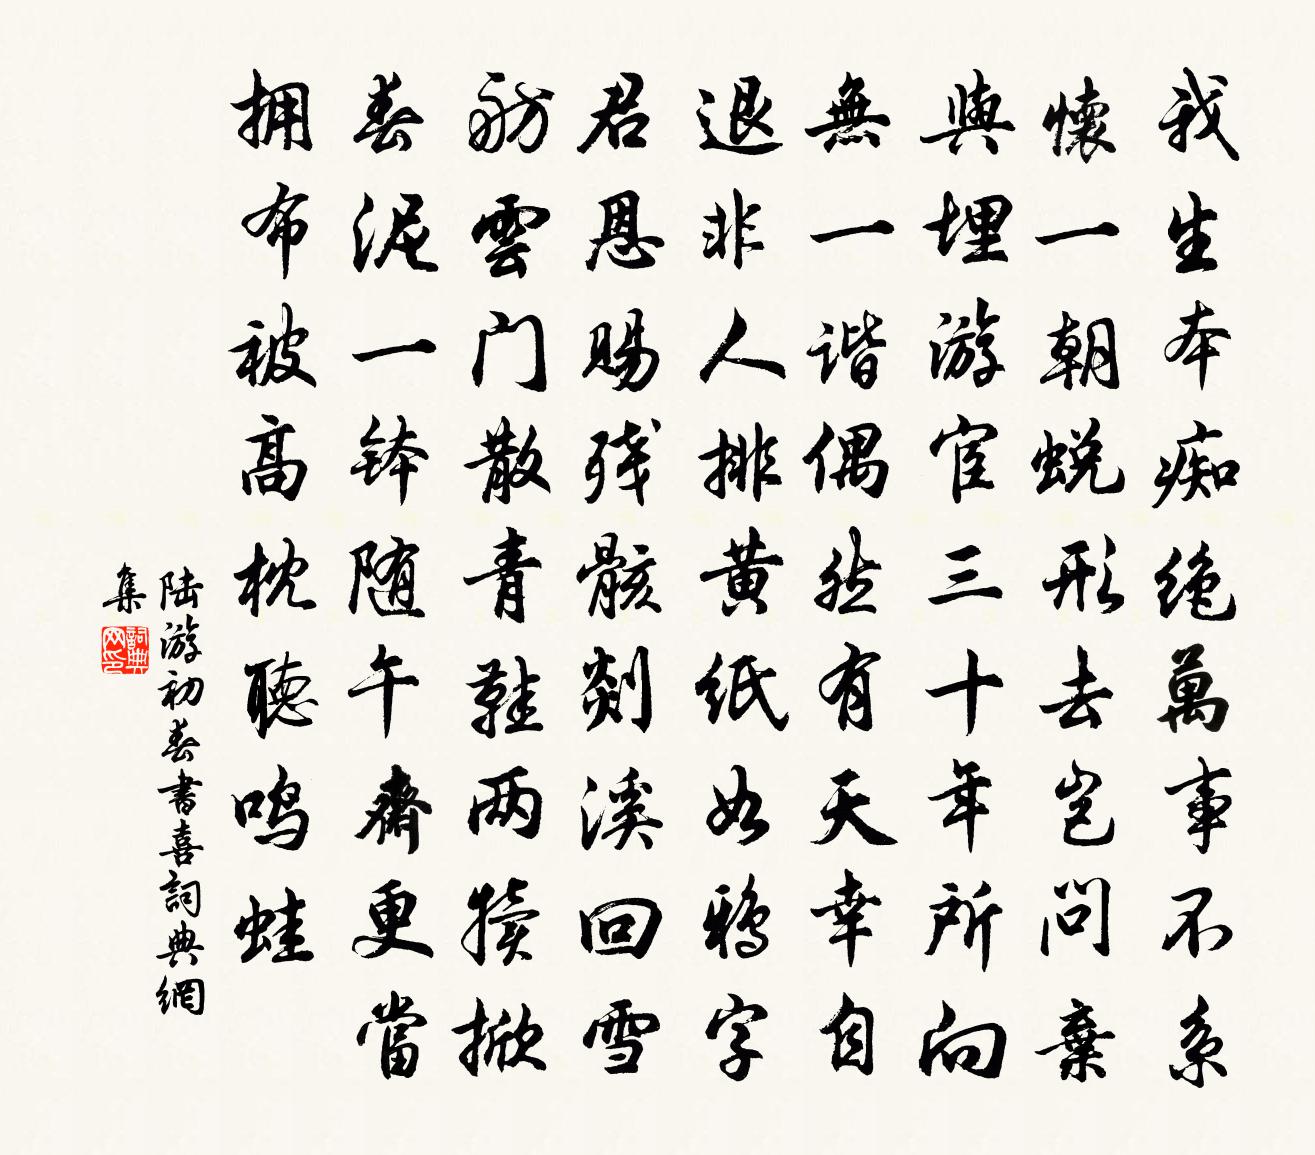 我生本痴绝萬事不系
懷一朝蜕形去豈問棄
與埋游宦三十年所向
無一谐偶然有天幸自
退非人排黄纸如鴉字
君恩赐残骸剡溪回雪
舫雲门散青鞋两犢掀
春泥一钵随午齋更當
拥布被高枕聽鸣蛙
陆游初春書喜詞典網
集
詞典网印